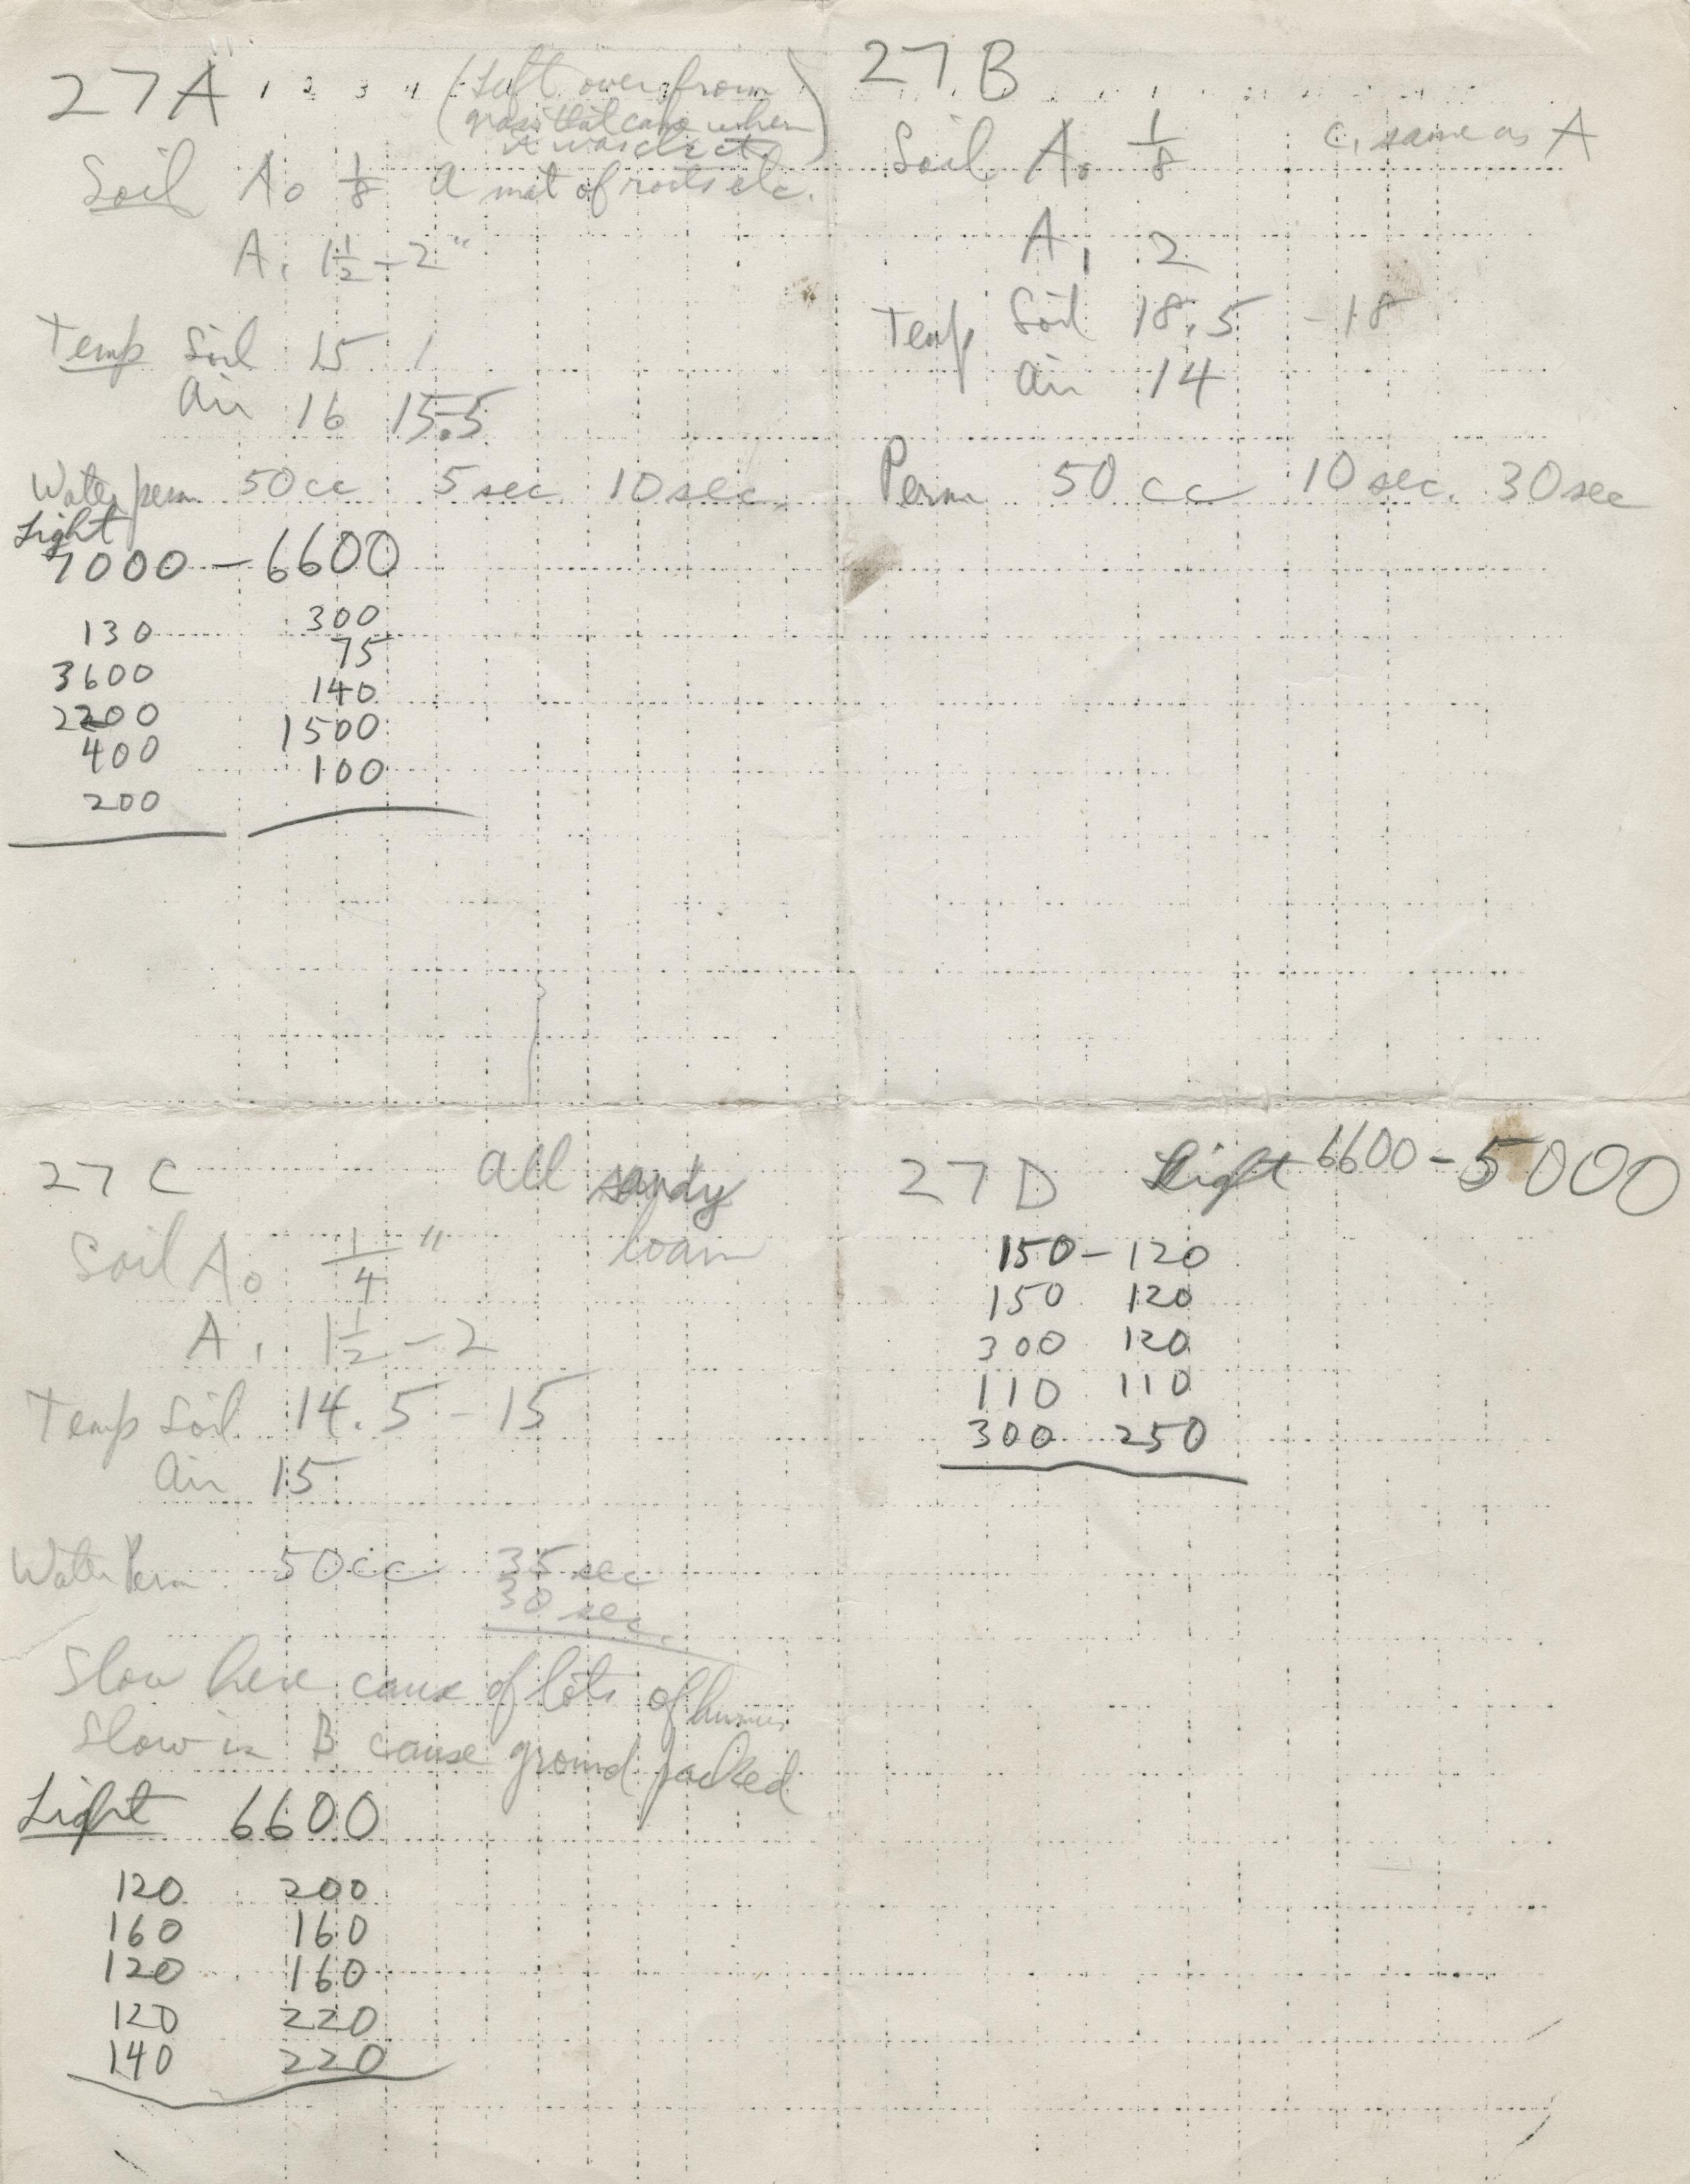 27A 1 2 3 4 (Left over from
grass that came when
it was clear cut.)
Soil A0 1/8 a mat of roots etc.
A1 1 1/2 - 2"
Temp Soil 15 1
Air 16 15.5
Water perm 50cc 5 sec 10 sec.
Light
7000 - 6600
130 300
3600 75
2200 140
400 1500
200 100
27B
Soil A0 1/8 C, same as A
A1 2
Temp Soil 18.5 - 18
Air 14
Perm 50 cc 10 sec. 30 sec
27 C all sandy
loam
Soil A0 1/4"
A1 1 1/2 - 2
Temp Soil 14.5 - 15
Air 15
Water Perm 50cc 35 sec
30 sec.
Slow here cause of lots of humus
Slow in B cause ground packed
Light 6600
120 200
160 160
120 160
120 220
140 220
27 D Light 6600 - 5000
150 - 120
150 120
300 120
110 110
300 250